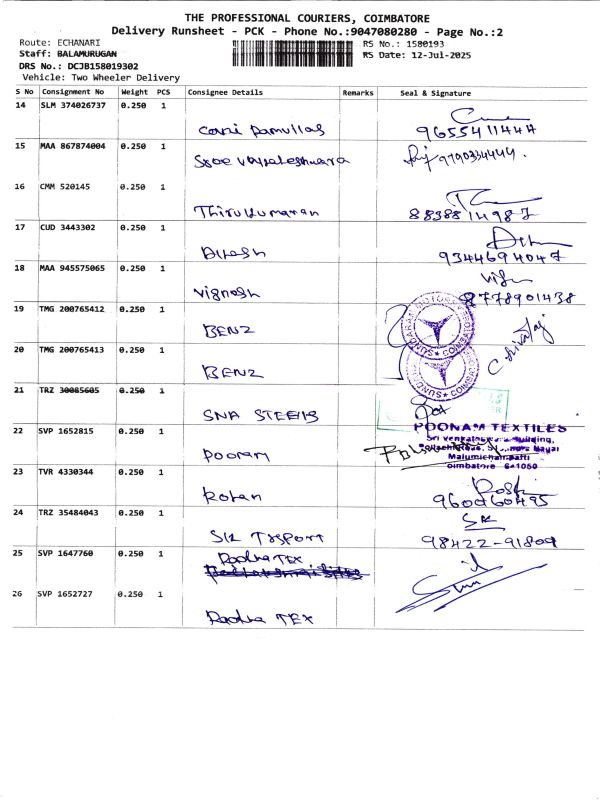 THE PROFESSIONAL COURIERS, COIMBATORE
Delivery Runsheet - PCK - Phone No.:9047080280 - Page No.:2
Route: ECHANARI
RS No.: 1580193
Staff: BALAMURUGAN
RS Date: 12-Jul-2025
DRS No.: DCJB158019302
Vehicle: Two Wheeler Delivery
S No Consignment No Weight PCS Consignee Details Remarks Seal & Signature
14 SLM 374026737 0.250 1
9655411444
15 MAA 867874004 0.250 1
9790334444.
16 CMM 520145 0.250 1
Thirukumaran 8838814987
17 CUD 3443302 0.250 1
Dinesh 9344694047
18 MAA 945575065 0.250 1
Vignesh 8778901438
19 TMG 200765412 0.250 1
BENZ
SUNDARAM MOTORS COIMBATORE
20 TMG 200765413 0.250 1
BENZ
C. Shivalaji
21 TRZ 30085605 0.250 1
SNA STEELS
22 SVP 1652815 0.250 1
POONAM TEXTILES
Sri Venkateswara Building,
Malumichampatti
Coimbatore 641050
Pooram
23 TVR 4330344 0.250 1
Rohan 9600060495
24 TRZ 35484043 0.250 1
SK Trsport SK
98422-91809
25 SVP 1647760 0.250 1
Radha TEX
26 SVP 1652727 0.250 1
Radha TEX